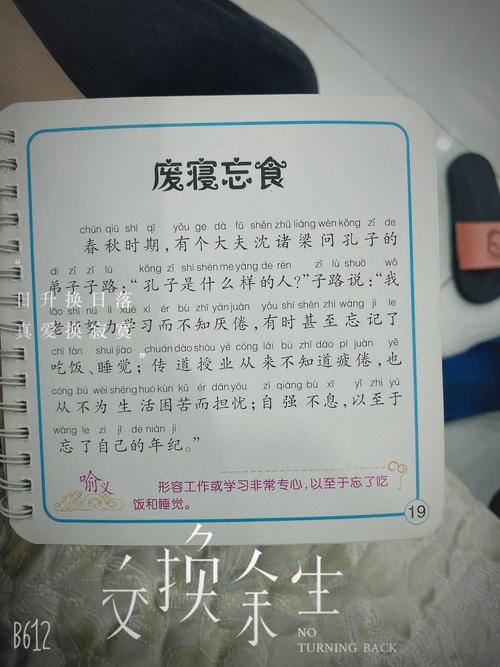 废寝忘食
chūn qiū shí qī yǒu ge dà fū shěn zhū liáng wèn kǒng zǐ de
春秋时期,有个大夫沈诸梁问孔子的
dì zǐ zǐ lù kǒng zǐ shì shén me yàng de rén zǐ lù shuō wǒ
弟子子路:“孔子是什么样的人?”子路说:“我
lǎo shī nǔ lì xué xí ér bù zhī yàn juàn yǒu shí shèn zhì wàng jì le
老师努力学习而不知厌倦,有时甚至忘记了
chī fàn shuì jiào chuán dào shòu yè cóng lái bù zhī dào pí juàn yě
吃饭、睡觉;传道授业从来不知道疲倦,也
cóng bú wèi shēng huó kùn kǔ ér dān yōu zì qiáng bù xī yǐ zhì yú
从不为生活困苦而担忧;自强不息,以至于
wàng le zì jǐ de nián jì
忘了自己的年纪。”
喻义
形容工作或学习非常专心,以至于忘了吃
饭和睡觉。
19
“
日升换日落
真爱换寂寞
”
交换余生
NO
TURNING BACK
B612